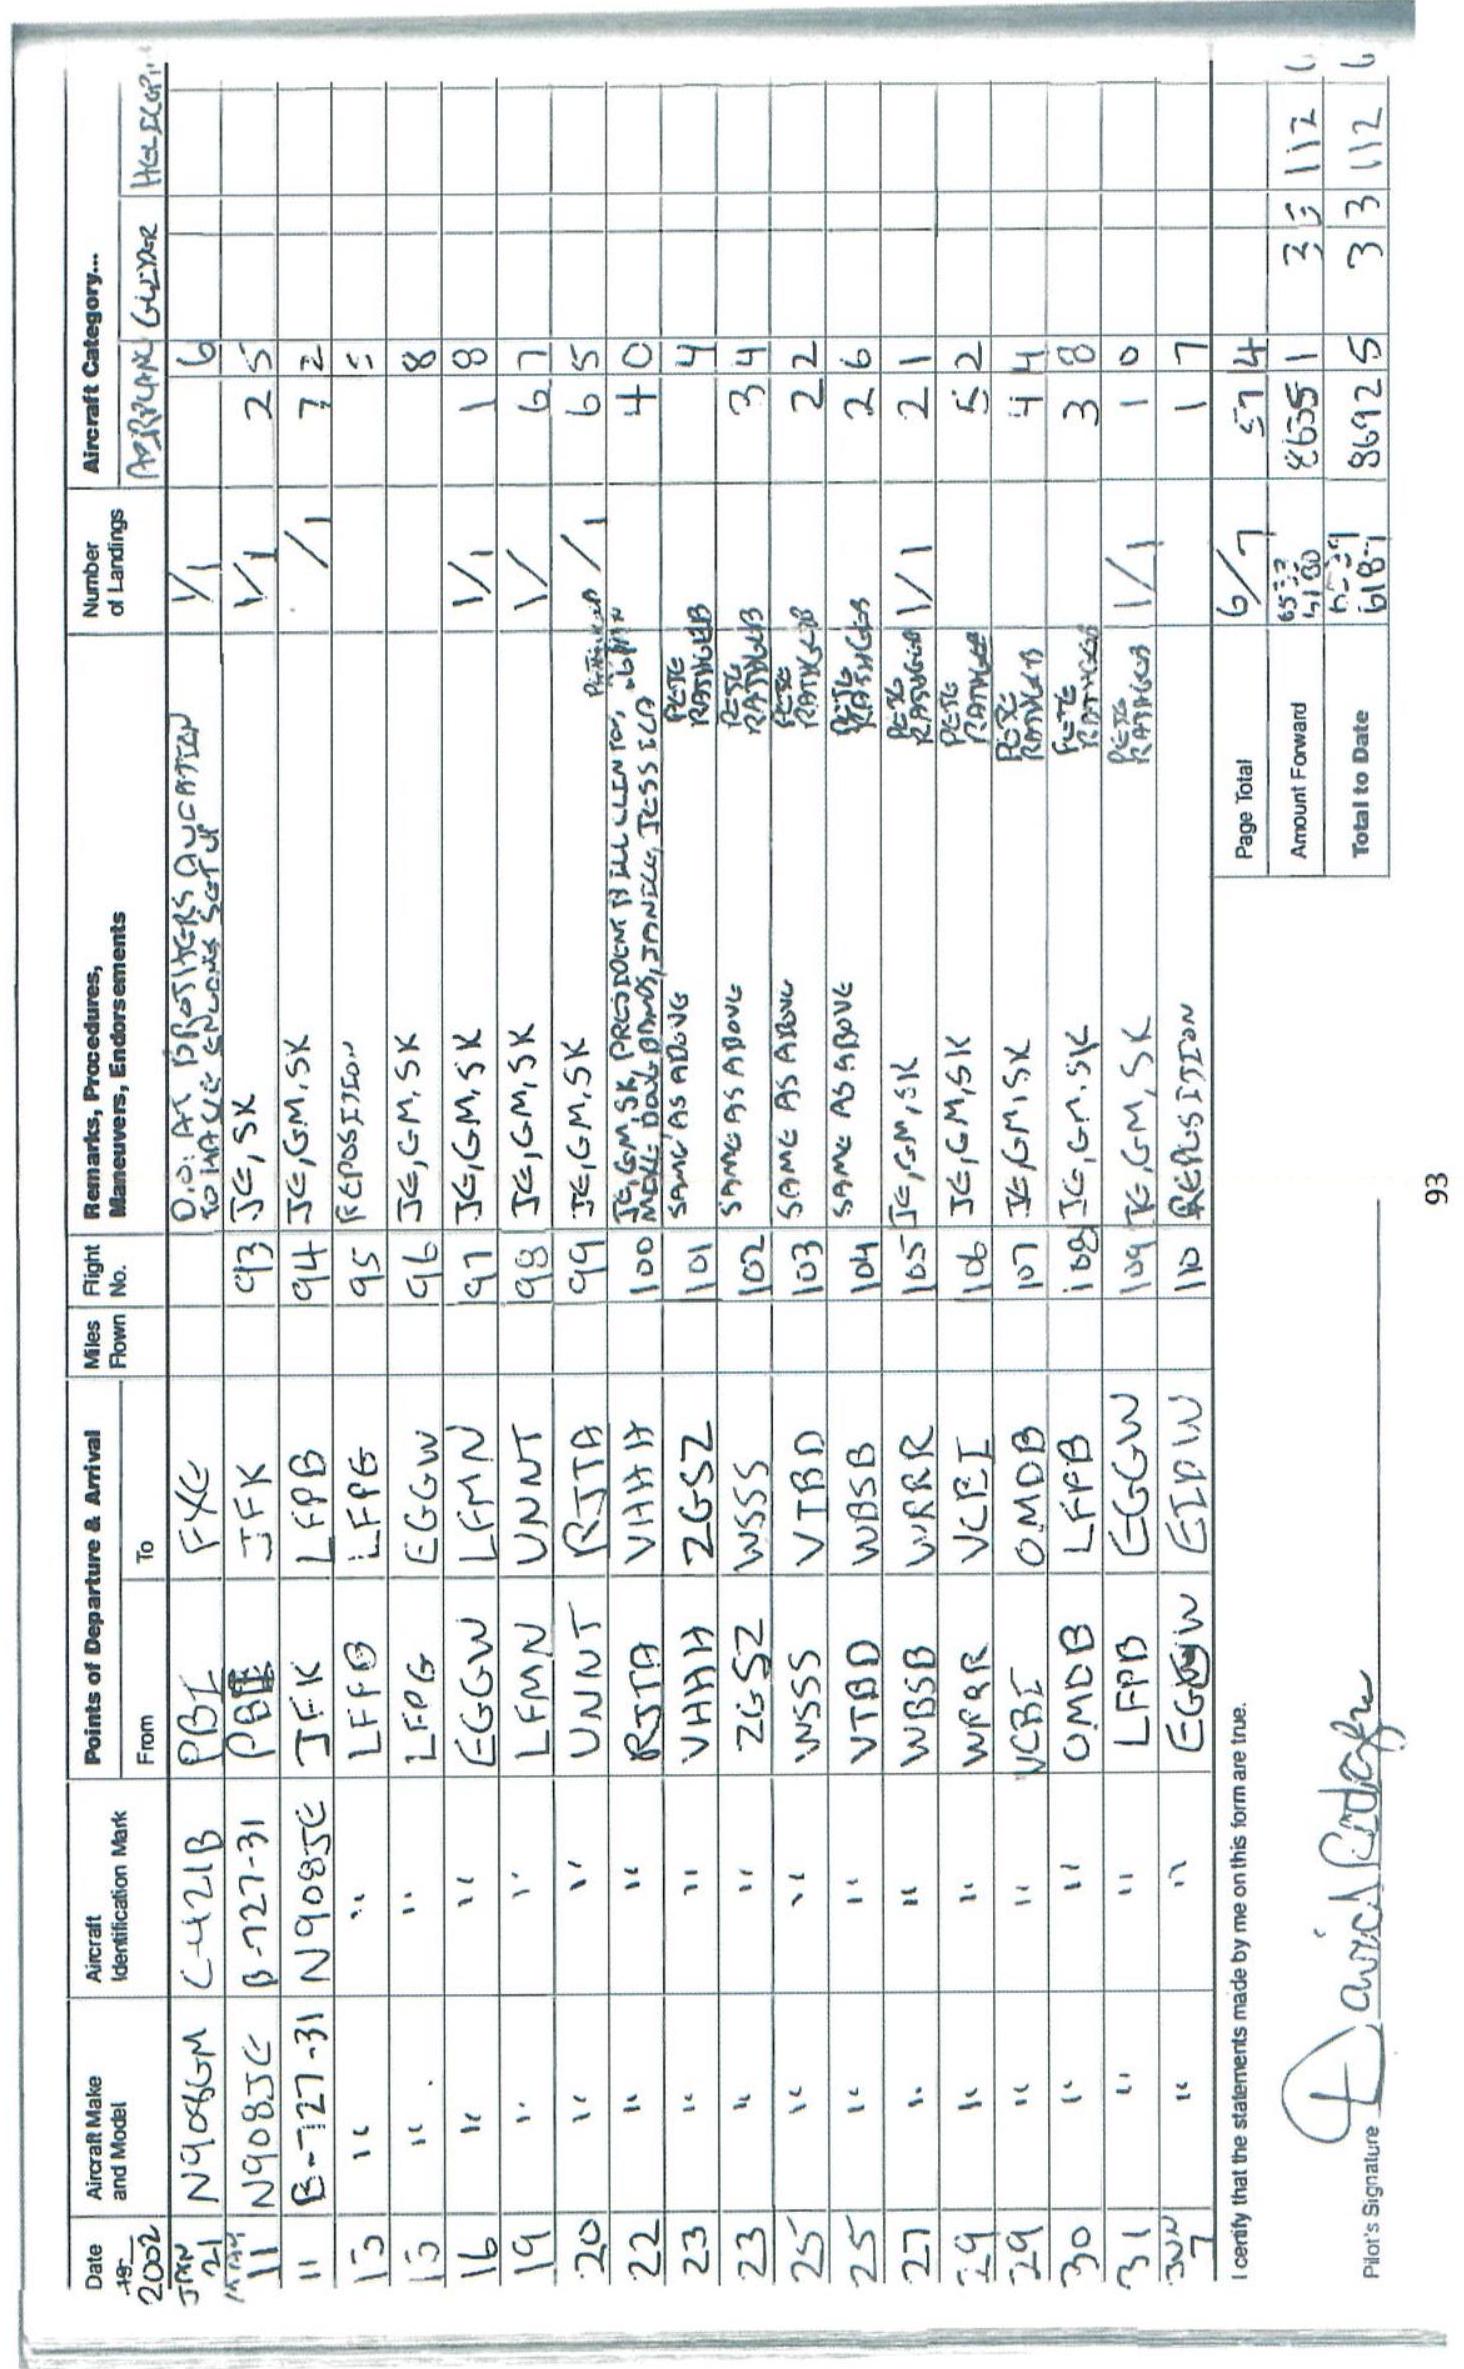 Date 19 2002 | Aircraft Make and Model | Aircraft Identification Mark | Points of Departure & Arrival From | To | Miles Flown | Flight No. | Remarks, Procedures, Maneuvers, Endorsements | Number of Landings | Aircraft Category... AIRPLANE | GLIDER
JAN 21 | N908GM | C-421B | PBI | FXE | O.O. AT BROTHERS AVIATION TO HAVE ENGINE | 1/1 | 6
MAY 11 | N908JE | B-727-31 | PBI | JFK | 93 | JE, SK | 1/1 | 2 5
11 | B-727-31 | N908JE | JFK | LFPB | 94 | JE, GM, SK | /1 | 7 2
" | " | LFPB | LFPG | 95 | REPOSITION
" | " | LFPG | EGGW | 96 | JE, GM, SK | 8
16 | " | " | EGGW | LFMN | 97 | JE, GM, SK | 1/1 | 1 8
19 | " | " | LFMN | UNNT | 98 | JE, GM, SK | 1/ | 6 7
20 | " | " | UNNT | RJTA | 99 | JE, GM, SK | /1 | 6 5
22 | " | " | RJTA | VHHH | 100 | JE, GM, SK, PRESIDENT BILL CLINTON, | 4 0
MIKE, DOUG BANDS, JANICE, JESSICA
23 | " | " | VHHH | ZGSZ | 101 | SAME AS ABOVE | PETE RATHGEB | 4
23 | " | " | ZGSZ | WSSS | 102 | SAME AS ABOVE | PETE RATHGEB | 3 4
25 | " | " | WSSS | VTBD | 103 | SAME AS ABOVE | PETE RATHGEB | 2 2
25 | " | " | VTBD | WBSB | 104 | SAME AS ABOVE | PETE RATHGEB | 2 6
27 | " | " | WBSB | WRRR | 105 | JE, GM, SK | PETE RATHGEB | 1/1 | 2 1
29 | " | " | WRRR | VCBI | 106 | JE, GM, SK | PETE RATHGEB | 5 2
29 | " | " | VCBI | OMDB | 107 | JE, GM, SK | PETE RATHGEB | 4 4
30 | " | " | OMDB | LFPB | 108 | JE, GM, SK | PETE RATHGEB | 3 8
31 | " | " | LFPB | EGGW | 109 | JE, GM, SK | PETE RATHGEB | 1/1 | 1 0
JUN 7 | " | " | EGGW | EIDW | 110 | REPOSITION | 1 7
I certify that the statements made by me on this form are true.
Page Total | 6/7 | 57 4
Amount Forward | 8635 1 | 3 | 112
Total to Date | 8692 5 | 3 3 | 112
Pilot's Signature David Rodgers
93